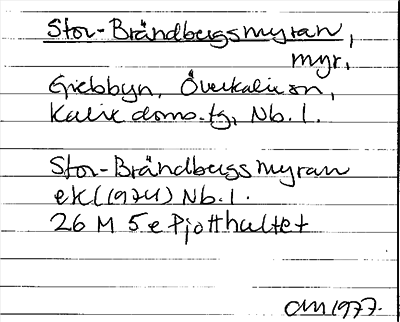 Stor-Brändbergsmyran,
myr,
Grelsbyn, Överkalix sn,
Kalix doms.tg, Nb. l.
Stor-Brändbergsmyran
ek (1974) Nb. l.
26 M 5 e Pjotthultet
OM 1977.